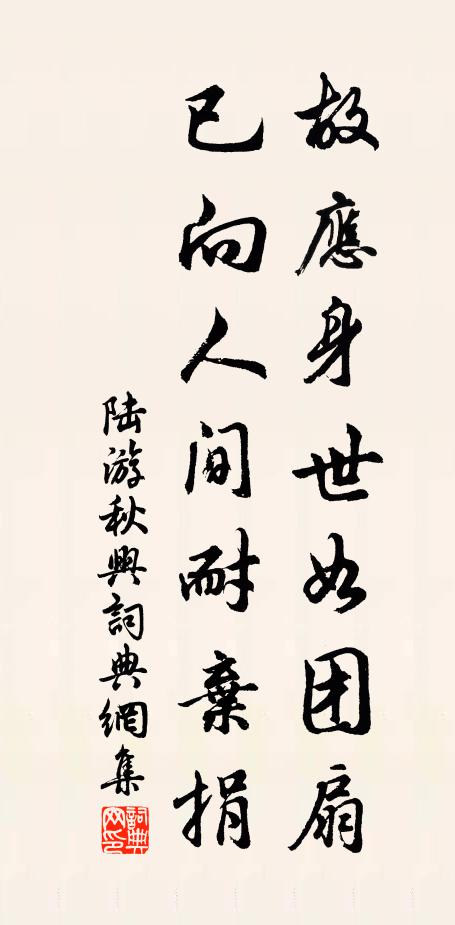 故應身世如团扇
已向人间耐棄捐
陆游秋興詞典網集
詞典网印